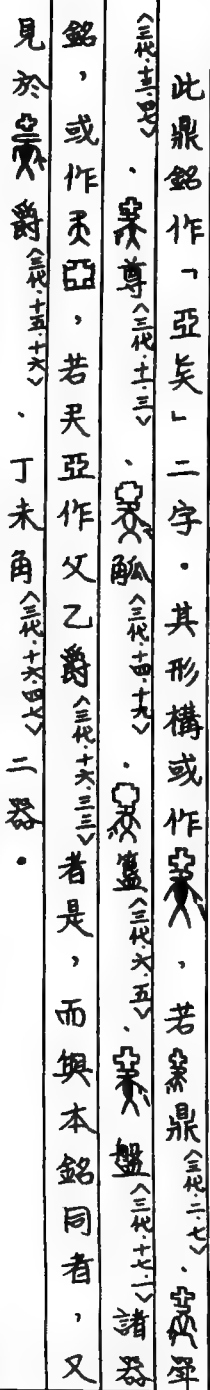 此鼎銘作「亞𠤕」二字。其形構或作，若鼎〈三代·二·七〉、斝
〈三代·十三·四七〉、尊〈三代·十一·三〉、觚〈三代·十四·十九〉、簋〈三代·六·五〉、盤〈三代·十七·一〉諸器
銘，或作，若亞作父乙爵〈三代·十六·三三〉者是，而與本銘同者，又
見於爵〈三代·十五·十六〉、丁未角〈三代·十六·四七〉二器。